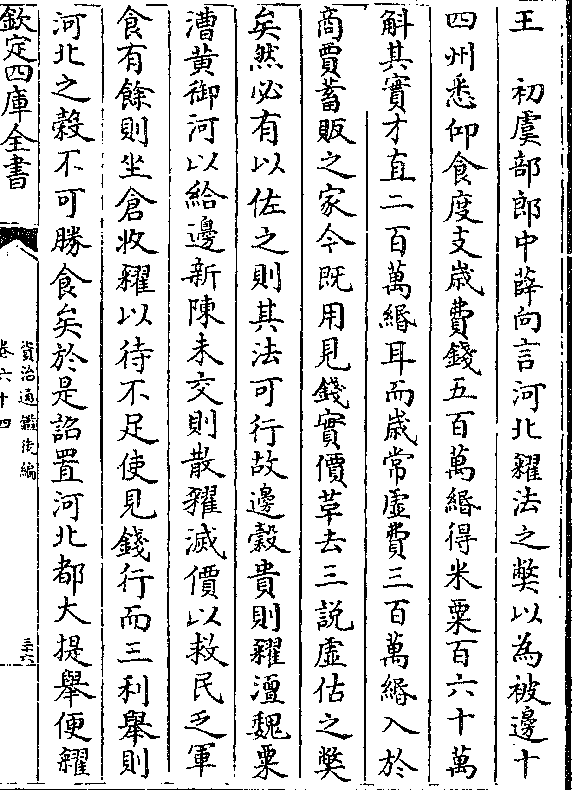 王　初虞部郎中薛向言河北糴法之獘以為被邊十
四州悉仰食度支歲費錢五百萬緡得米粟百六十萬
斛其實才直二百萬緡耳而歲常虛費三百萬緡入於
商賈蓄販之家今既用見錢實價革去三說虛估之獘
矣然必有以佐之則其法可行故邊穀貴則糴澶魏粟
漕黃御河以給邊新陳未交則散糴減價以救民乏軍
食有餘則坐倉收糴以待不足使見錢行而三利舉則
河北之穀不可勝食矣於是詔置河北都大提舉便糴
欽定四庫全書
資治通鑑後編
卷六十四
三十六